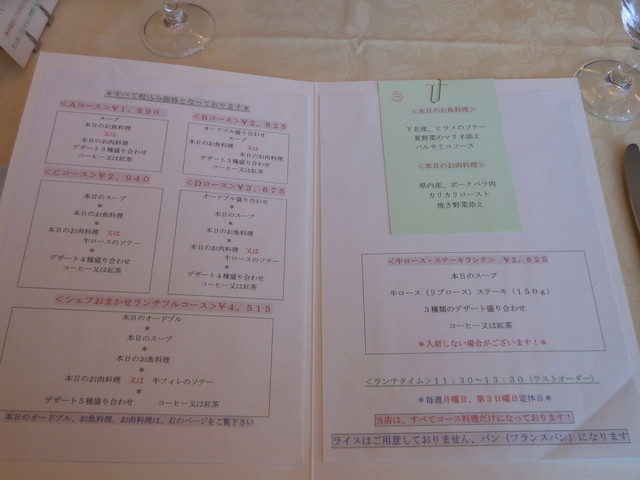 ＊すべて税込み価格となっております＊
＜Aコース＞￥1,890
スープ
本日のお魚料理
又は
本日のお肉料理
デザート3種盛り合わせ
コーヒー又は紅茶
＜Bコース＞￥2,625
オードブル盛り合わせ
スープ
本日のお魚料理 又は
本日のお肉料理
デザート3種盛り合わせ
コーヒー又は紅茶
＜Cコース＞￥2,940
本日のスープ
＊
本日のお魚料理
＊
本日のお肉料理 又は
牛ロースのソテー
＊
デザート4種盛り合わせ
コーヒー又は紅茶
＜Dコース＞￥3,675
オードブル盛り合わせ
＊
本日のスープ
＊
本日のお魚料理
＊
本日のお肉料理 又は
牛ロースのソテー
＊
デザート4種盛り合わせ
コーヒー又は紅茶
＜シェフおまかせランチフルコース＞￥4,515
本日のオードブル
＊
本日のスープ
＊
本日のお魚料理
＊
本日のお肉料理 又は 牛フィレのソテー
＊
デザート5種盛り合わせ コーヒー又は紅茶
本日のオードブル、お魚料理、お肉料理は、右のページをご覧下さい
＜本日のお魚料理＞
下北産、ヒラメのソテー
夏野菜のマリネ添え
バルサミコソース
＜本日のお肉料理＞
県内産、ポークバラ肉
カリカリロースト
焼き野菜添え
＜牛ロース・ステーキランチ＞ ￥2,625
本日のスープ
牛ロース（リブロース）ステーキ（150g）
3種類のデザート盛り合わせ
コーヒー又は紅茶
＊入荷しない場合がございます！＊
＜ランチタイム＞11:30～13:30（ラストオーダー）
＊毎週月曜日、第3日曜日定休日＊
当店は、すべてコース料理だけになっております！
ライスはご用意しておりません、パン（フランスパン）になります